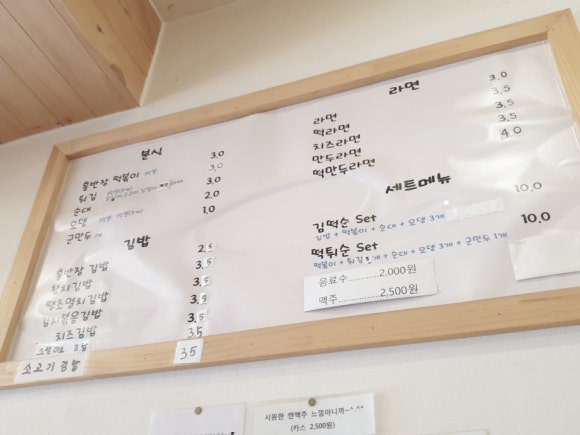 분식
홍반장 떡볶이 3.0
튀김 3.0
순대 3.0
오뎅 2.0
군만두 1.0
김밥
홍반장 김밥 2.5
참치김밥 3.5
땡초멸치김밥 3.5
김치볶음김밥 3.5
치즈김밥 3.5
김밥 3.5
소고기 김밥 3.5
라면
라면 3.0
떡라면 3.5
치즈라면 3.5
만두라면 3.5
떡만두라면 4.0
세트메뉴
김떡순 Set 10.0
김밥 + 떡볶이 + 순대 + 오뎅 3개
떡튀순 Set 10.0
떡볶이 + 튀김 개 + 순대 + 오뎅 3개 + 군만두 1개
음료수............2,000원
맥주.................2,500원
시원한 캔맥주 느낌아니까~^.^^
(카스 2,500원)